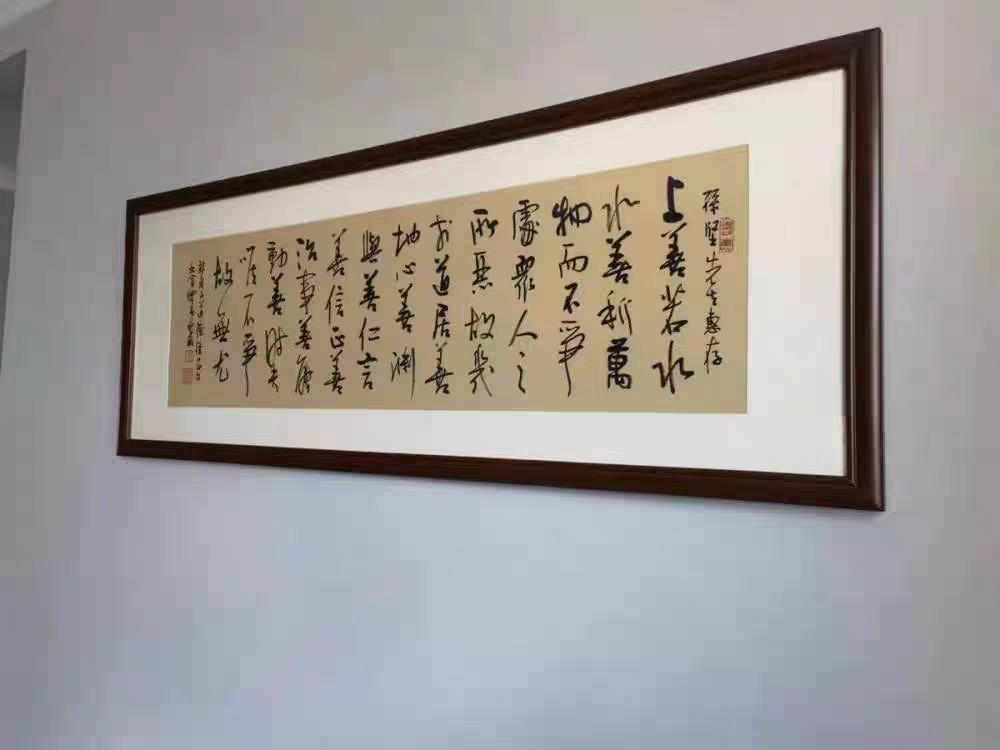 孫坚先生惠存
上善若水
水善利萬
物而不爭
處眾人之
所惡故幾
於道居善
地心善渊
與善仁言
善信正善
治事善能
動善時夫
唯不爭
故無尤